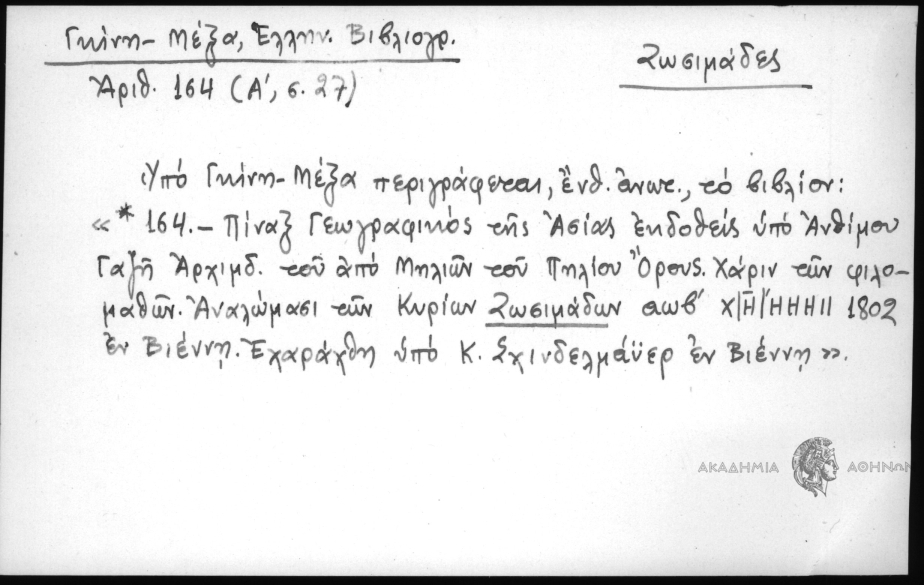 Γκίνη - Μέξα, Ἑλλην. Βιβλιογρ.
Ἀριθ. 164 (Α΄, σ. 27)
Ζωσιμάδες
Ὑπό Γκίνη - Μέξα περιγράφεται, ἔνθ. ἀνωτ., τό βιβλίον:
«*164.- Πίναξ Γεωγραφικός τῆς Ἀσίας ἐκδοθείς ὑπό Ἀνθίμου
Γαζῆ Ἀρχιμδ. τοῦ ἀπό Μηλιῶν τοῦ Πηλίου Ὄρους. Χάριν τῶν φιλο-
μαθῶν. Ἀναλώμασι τῶν Κυρίων Ζωσιμάδων αωβ΄ Χ|Η|ΗΗΗΙΙ 1802
ἐν Βιέννῃ. Ἐχαράχθη ὑπό Κ. Σχινδελμάϋερ ἐν Βιέννῃ».
ΑΚΑΔΗΜΙΑ ΑΘΗΝΩΝ